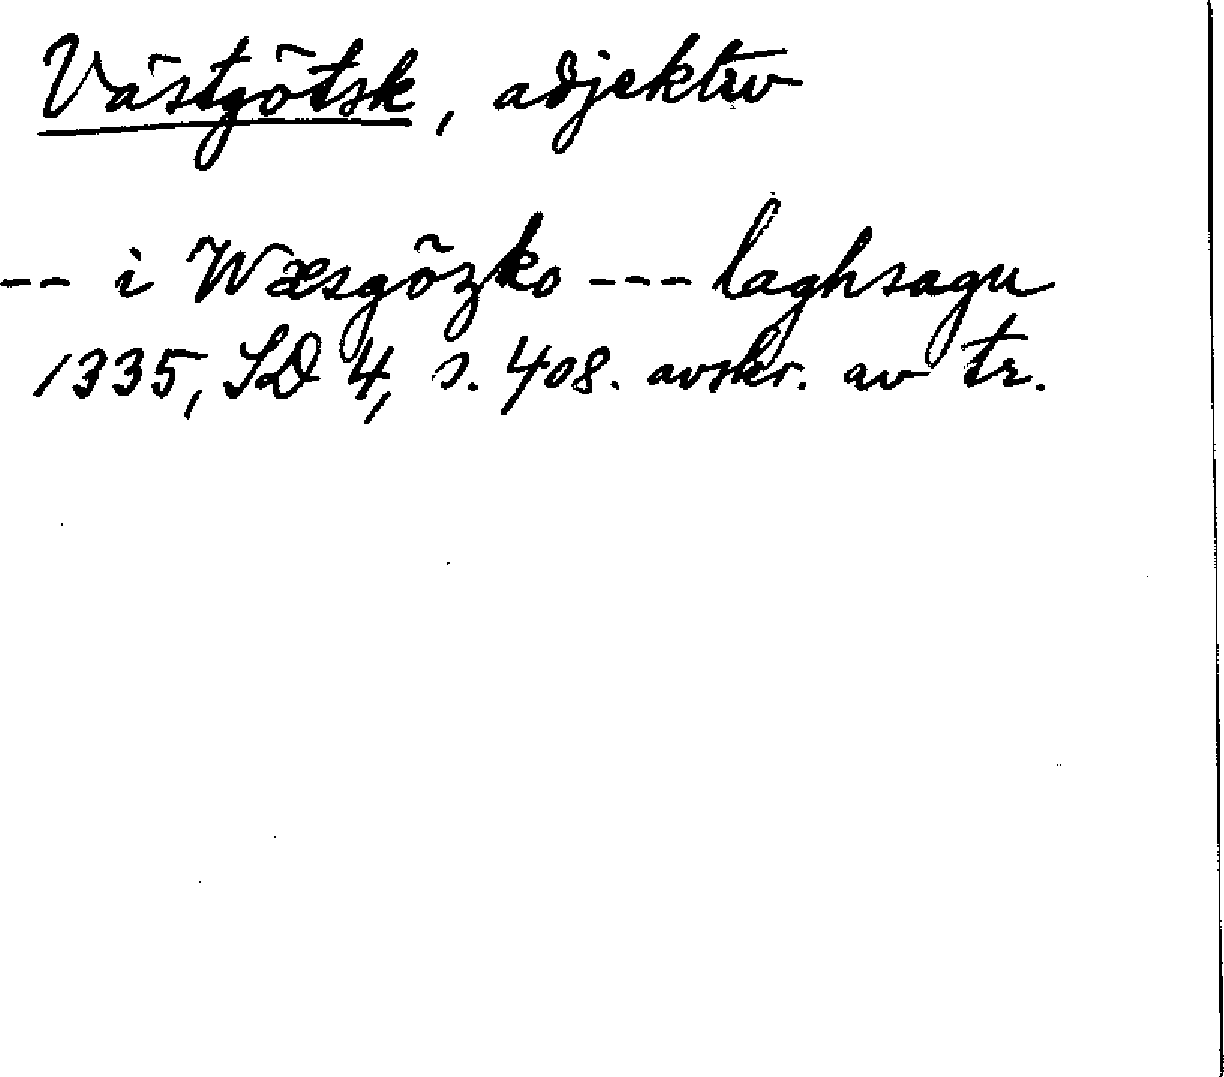 Västgötsk, adjektiv
-- i Wæsgözko --- laghsagu
1335, SD 4, s. 408. avskr. av tr.